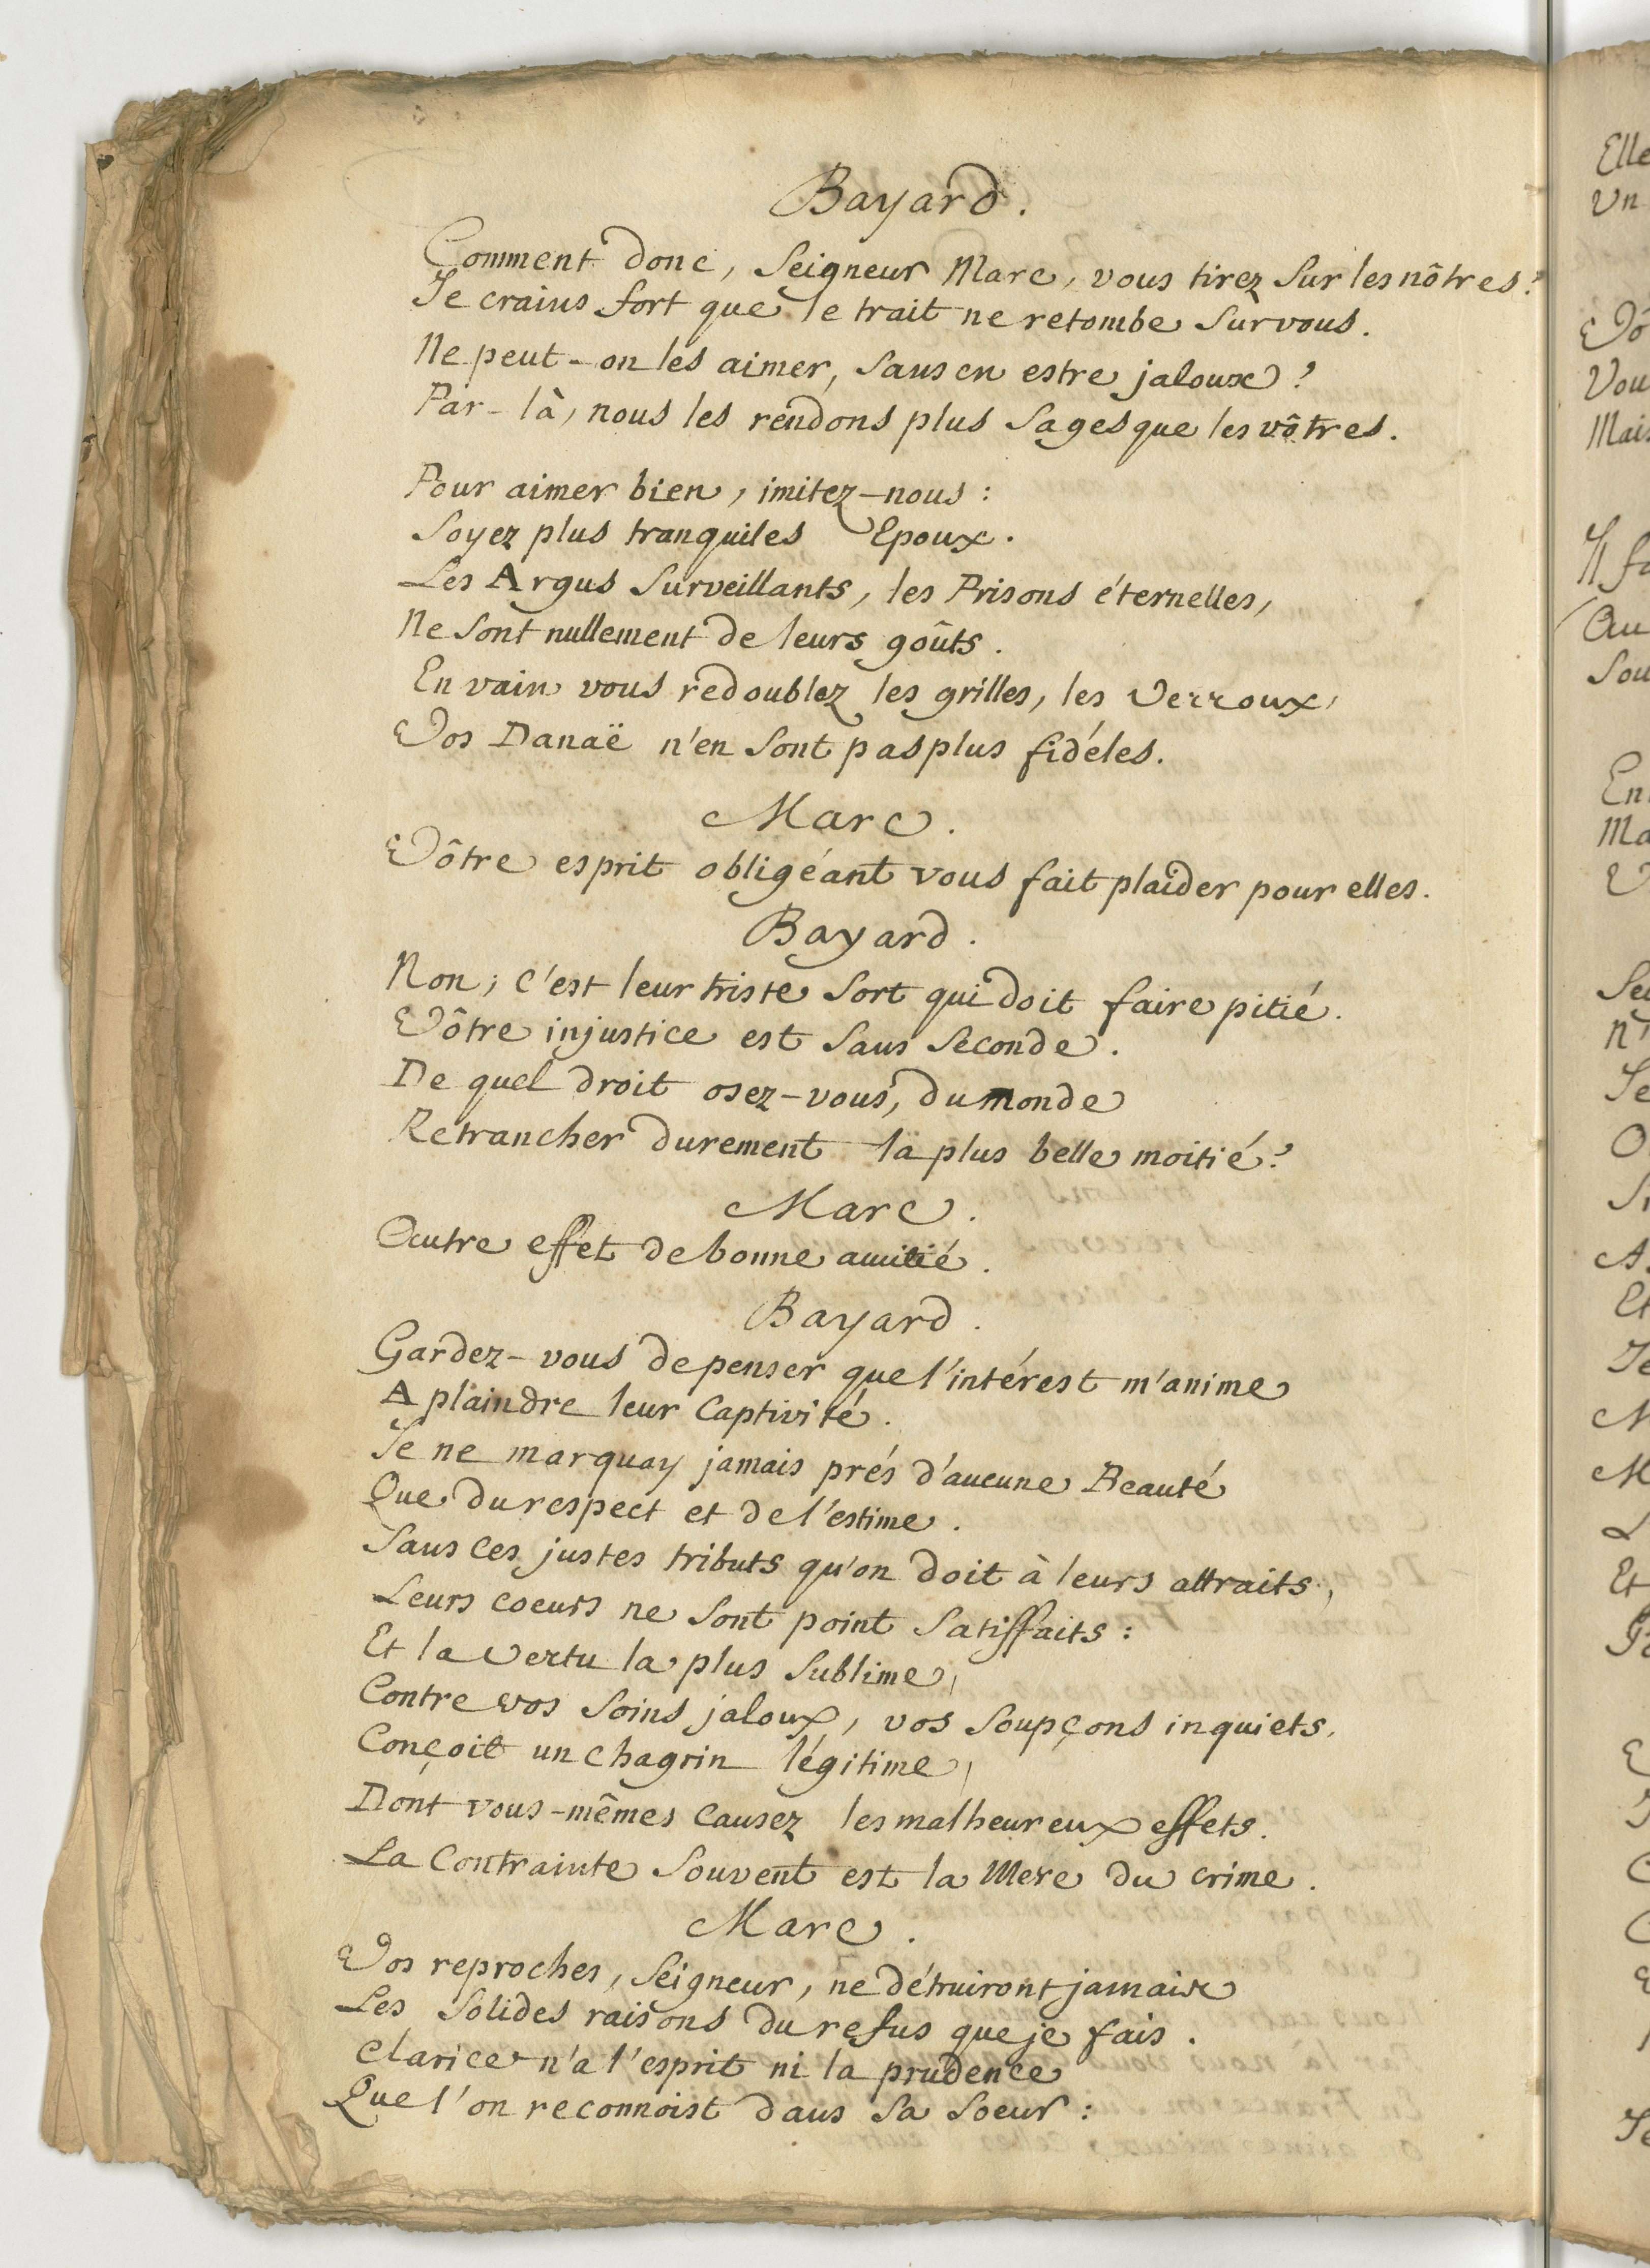 Bayard.
Comment donc, Seigneur Marc, vous tirez sur les nôtres?
Je crains fort que le trait ne retombe sur vous.
Ne peut-on les aimer, sans en estre jaloux?
Par-là, nous les rendons plus sages que les vôtres.
Pour aimer bien, imitez-nous:
Soyez plus tranquiles Epoux.
Les Argus surveillants, les Prisons éternelles,
Ne sont nullement de leurs goûts.
En vain vous redoublez les grilles, les Verroux,
Vos Danaë n'en sont pas plus fidéles.
Marc.
Vôtre esprit obligéant vous fait plaider pour elles.
Bayard.
Non; c'est leur triste sort qui doit faire pitié.
Vôtre injustice est sans seconde.
De quel droit osez-vous, du monde
Retrancher durement la plus belle moitié?
Marc.
Autre effet de bonne amitié.
Bayard.
Gardez-vous de penser que l'intérest m'anime
A plaindre leur Captivité.
Je ne marquay jamais prés d'aucune Beauté
Que du respect et de l'estime.
Sans ces justes tributs qu'on doit à leurs attraits,
Leurs coeurs ne sont point satisffaits:
Et la Vertu la plus sublime,
Contre vos soins jaloux, vos soupçons inquiets,
Conçoit un chagrin légitime,
Dont vous-mêmes causez les malheureux effets.
La Contrainte souvent est la Mere du crime.
Marc.
Vos reproches, Seigneur, ne détruiront jamais
Les solides raisons du refus que je fais.
Clarice n'a l'esprit ni la prudence
Que l'on reconnoist dans sa soeur:
Elle
Un
Vô
Vou
Mais
Il fa
Sou
En
Ma
Je
Et